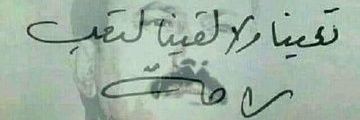 تعبنا ولا لقينا لتعب
راحة